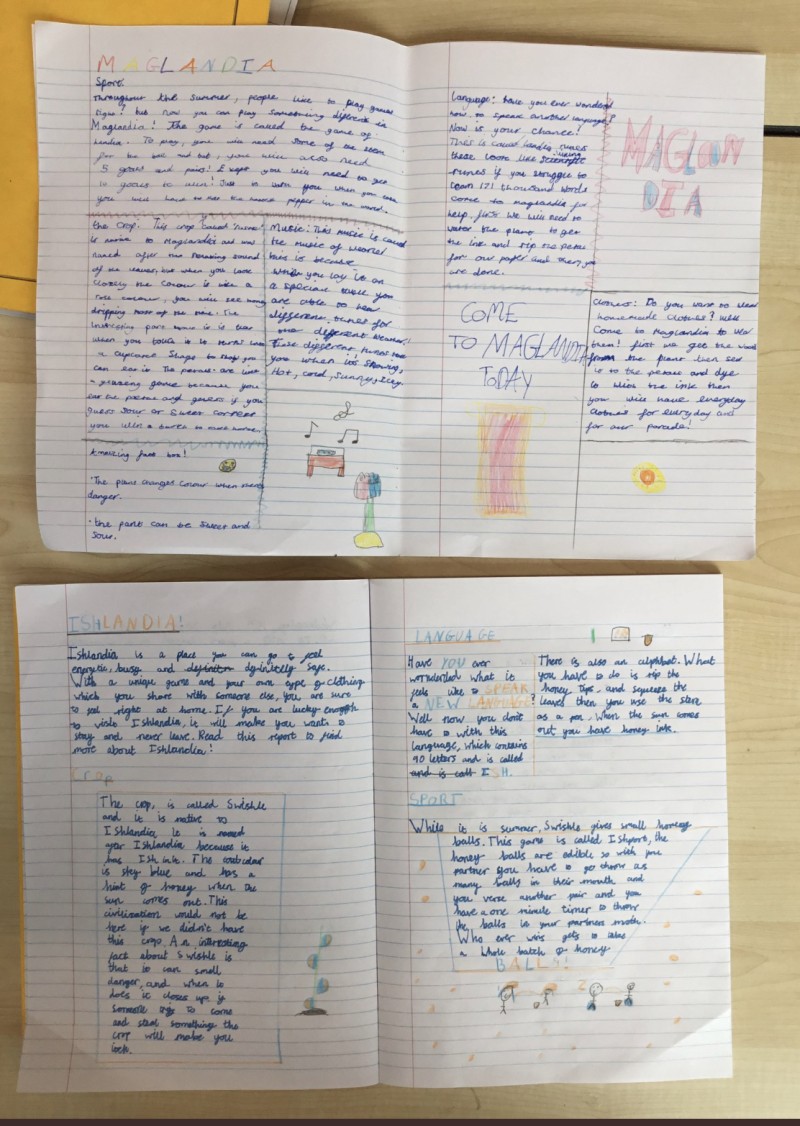 MAGLANDIA
Sport:
Throughout the summer, people like to play games
right? but now you can play something different in
Maglandia! The game is called the game of
landia. To play, you will need some of the stem
for the bat and but, you will also need
5 goals and ping! Expt you will need to get
10 goals to win! Just to warn you when you
you will have to eat the pepper in the world.
the crop. This crop called
is native to Maglandia and was
named after the sound
of the leaves, but when you look
closely the colour is like a
rose colour, you will see
dripping of the
intresting part is that
when you touch it it turns into
a cupcake shape to
can eat it. The petals are like
a guessing game because you
eat the petals and guess if you
guess sour or sweet correct
you win a
Amazing fact box!
• The plant changes colour when theres
danger.
• the pant can be sweet and
sour.
Music: This music is called
the music of weather
this is because
when you lay it on
a special table you
are able to hear
different tunes for
different weather!
These different tunes
you when it's snowing,
Hot, cold, sunny,
Language: have you ever wonderd
how to speak another language?
Now is your chance!
This is called landia runes
these look like scientific
runes if you struggle to
learn 171 thousand words
come to maglandia for
help. first we will need to
water the plant to get
the ink and rip the petal
for our paper and then you
are done.
MAGLOON
DIA
COME
TO MAGLANDIA
TODAY
Clothes: Do you want to wear
homemade clothes? Well
Come to Maglandia to wear
them! first we get the
from the plant then sew
it to the petals and dye
it with the ink then
you will have everyday
clothes for everyday and
for our parade!
ISHLANDIA!
Ishlandia is a place you can go to feel
energetic, busy and definitely safe.
With a unique game and your own type of clothing
which you share with someone else, you are sure
to feel right at home. If you are lucky enough
to visit Ishlandia, it will make you want to
stay and never leave. Read this report to find
more about Ishlandia!
Crop
The crop, is called Swishle
and it is native to
Ishlandia. It is named
after Ishlandia because it
has Ish ink. The
is sky blue and has a
hint of honey when the
sun comes out. This
civilization would not be
here if we didn't have
this crop. An interesting
fact about Swishle is
that it can smell
danger, and when it
does it closes up if
someone trys to come
and steal something the
crop will make you
sick.
LANGUAGE
Have YOU ever
wonderded what it
feels like to SPEAK
a NEW LANGUAGE?
Well now you don't
have to with this
language, which contains
90 letters and is called
and is call ISH.
There is also an alphbet. What
you have to do is rip the
honey tips, and squeeze the
leaves then you use the stem
as a pen. When the sun comes
out you have honey ink.
SPORT
While it is summer, Swishle gives small honey
balls. This game is called Ishport, the
honey balls are edible so with you
partner you have to get throw as
many balls in their mouth and
you verse another pair and you
have a one minute timer to throw
the balls in your partners mouth.
Who ever wins gets to take
a whole batch of honey
BALLS!